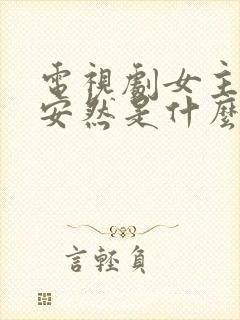 電視劇女主
安然是什麼
言輕負